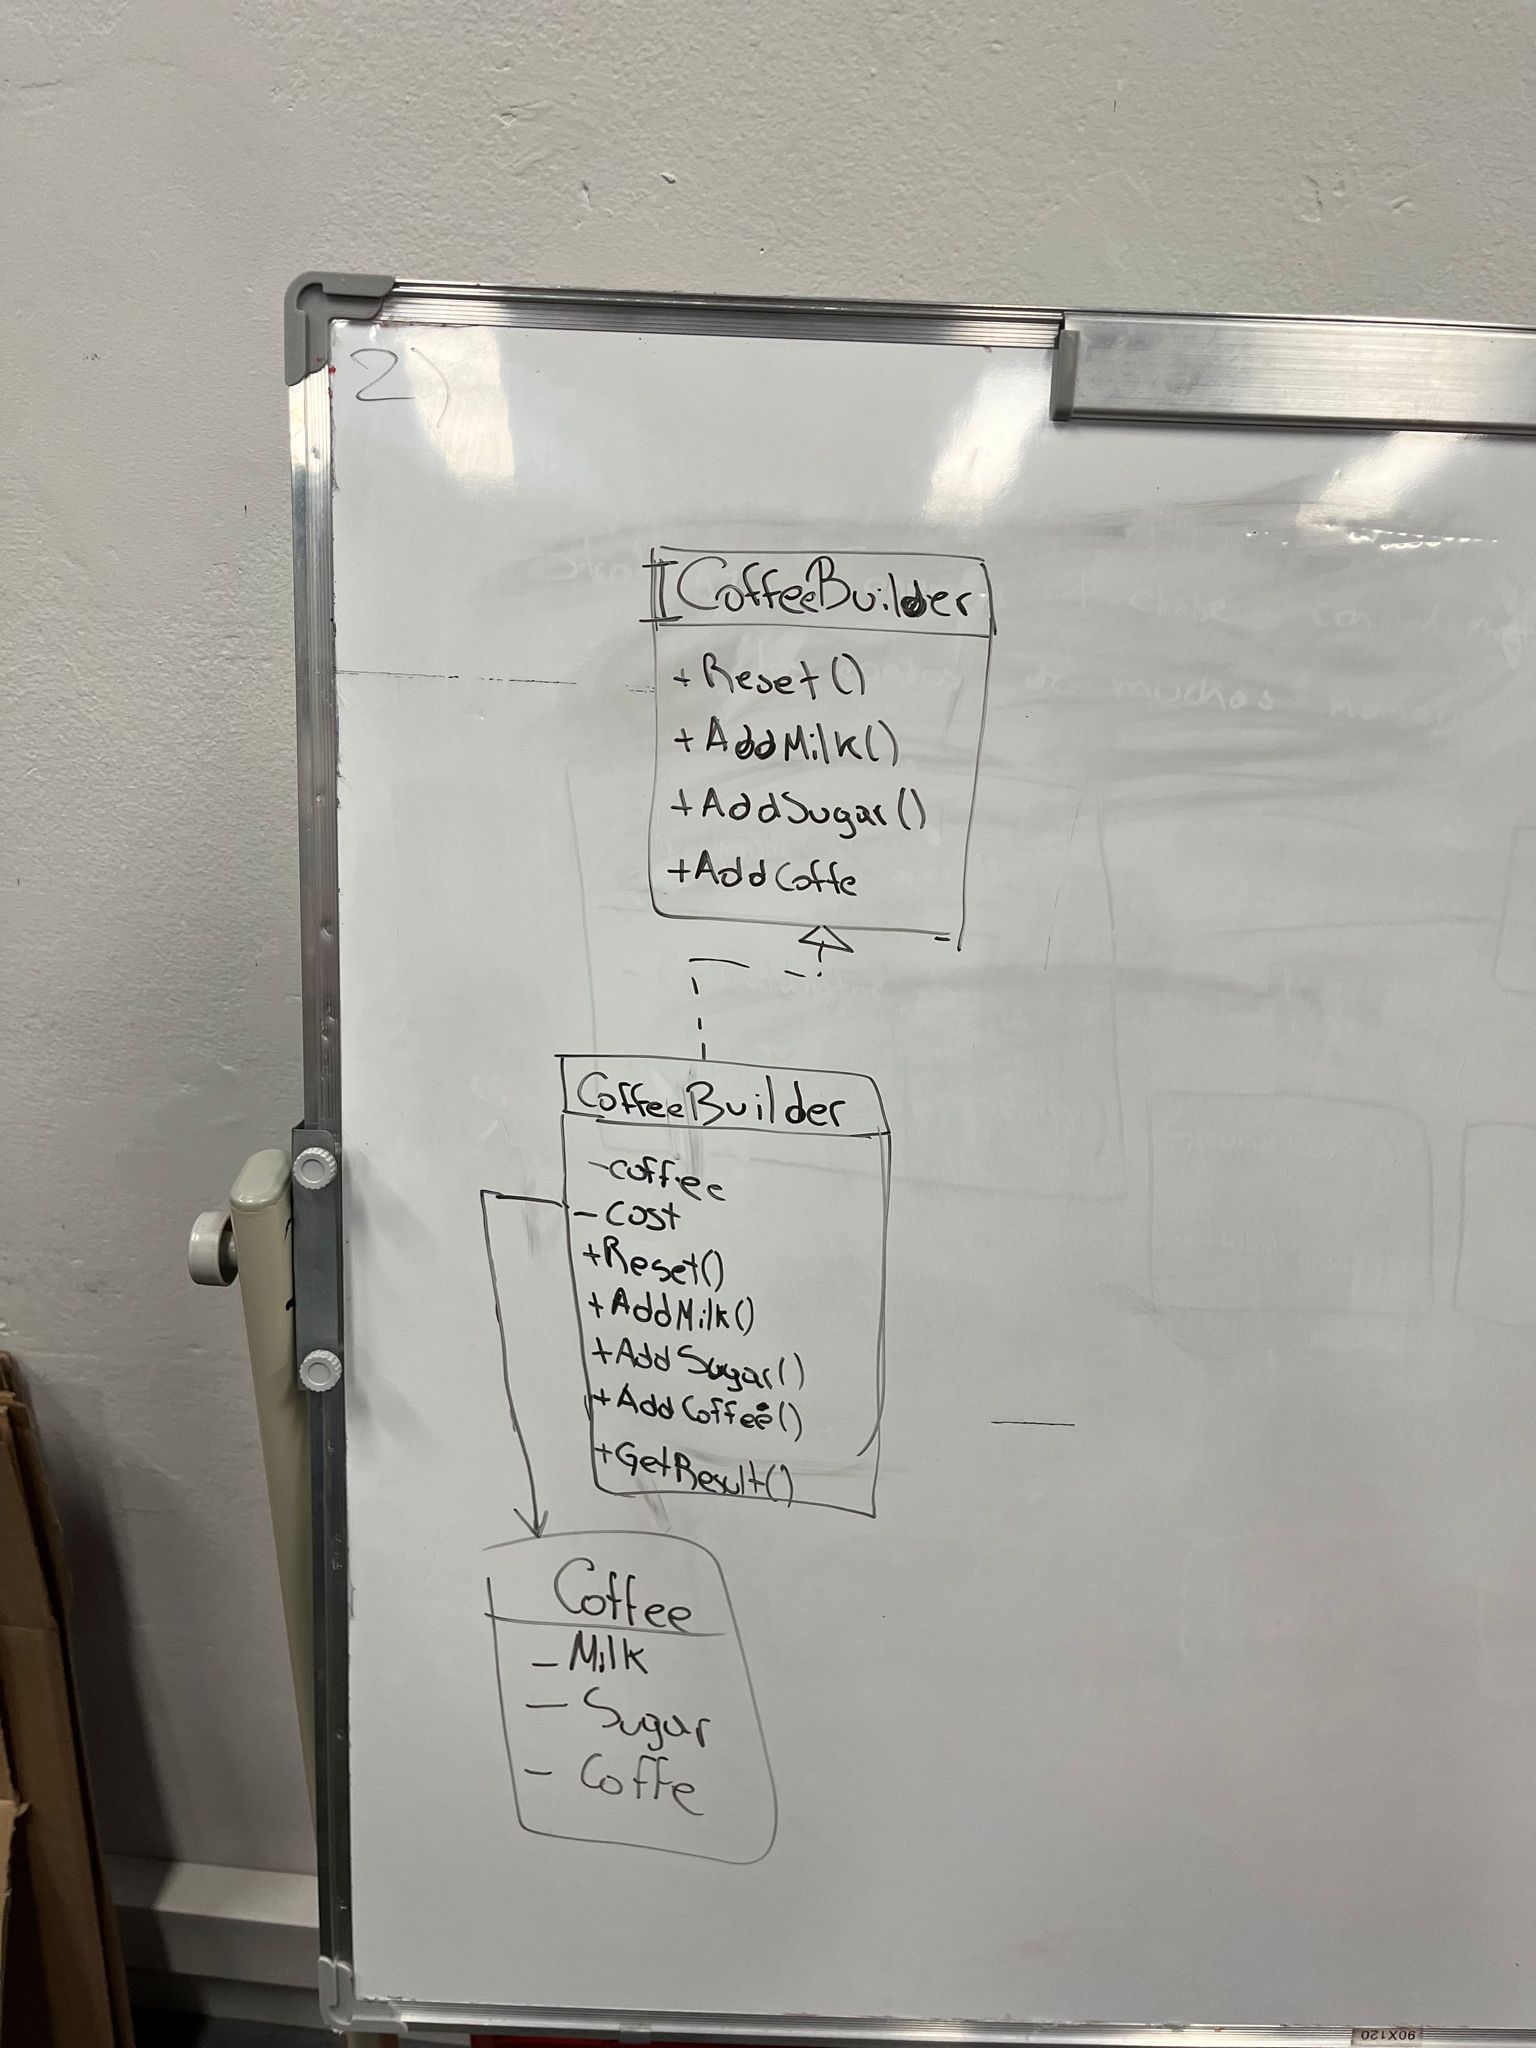 2)
ICoffeeBuilder
+Reset()
+AddMilk()
+AddSugar()
+AddCoffe
CoffeeBuilder
-coffee
-cost
+Reset()
+AddMilk()
+AddSugar()
+AddCoffee()
+GetResult()
Coffee
-Milk
-Sugar
-Coffe
clase con
muchos
90X120